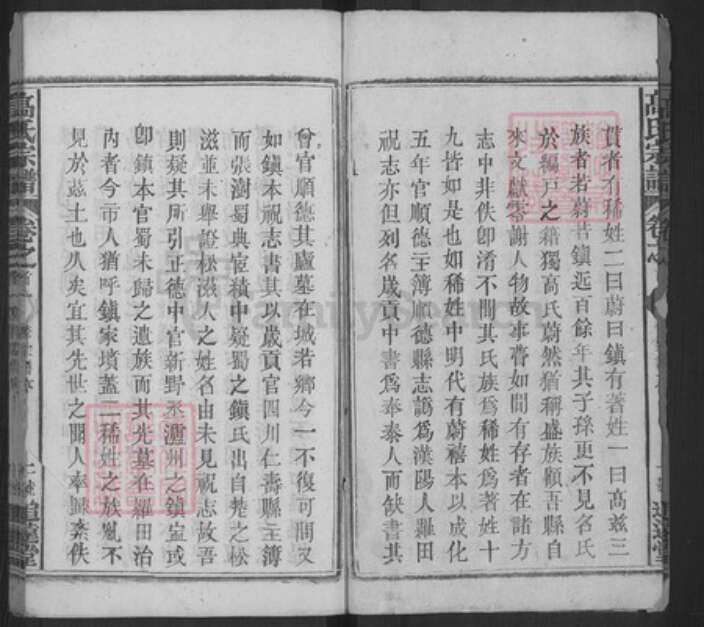 貫者有稀姓二曰蔚曰鎮有著姓一曰高茲三
族者若蔚若鎮近百餘年其子孫更不見名氏
於編戶之籍獨高氏蔚然猶稱盛族顧吾縣自
來文獻零謝人物故事嘗如聞有存者在諸方
志中非佚卽淆不問其氏族爲稀姓爲著姓十
九皆如是也如稀姓中明代有蔚禧本以成化
五年官順德主簿順德縣志譌爲漢陽人羅田
祝志亦但列名歲貢中書爲奉泰人而缺書其
曾官順德其廬墓在城若鄉今一不復可問又
如鎮本祝志書其以歲貢官四川仁壽縣主簿
而張澍蜀典宦積中疑蜀之鎮氏出自楚之松
滋並未舉證松滋人之姓名由未見祝志故吾
則疑其所引正德中官新野丞澧州之鎮宣或
卽鎮本官蜀未歸之遺族而其先墓在羅田治
內者今市人猶呼鎮家墳蓋二稀姓之族胤不
見於茲土也久矣宜其先世之聞人奉歸紊佚
高氏宗譜
卷之首